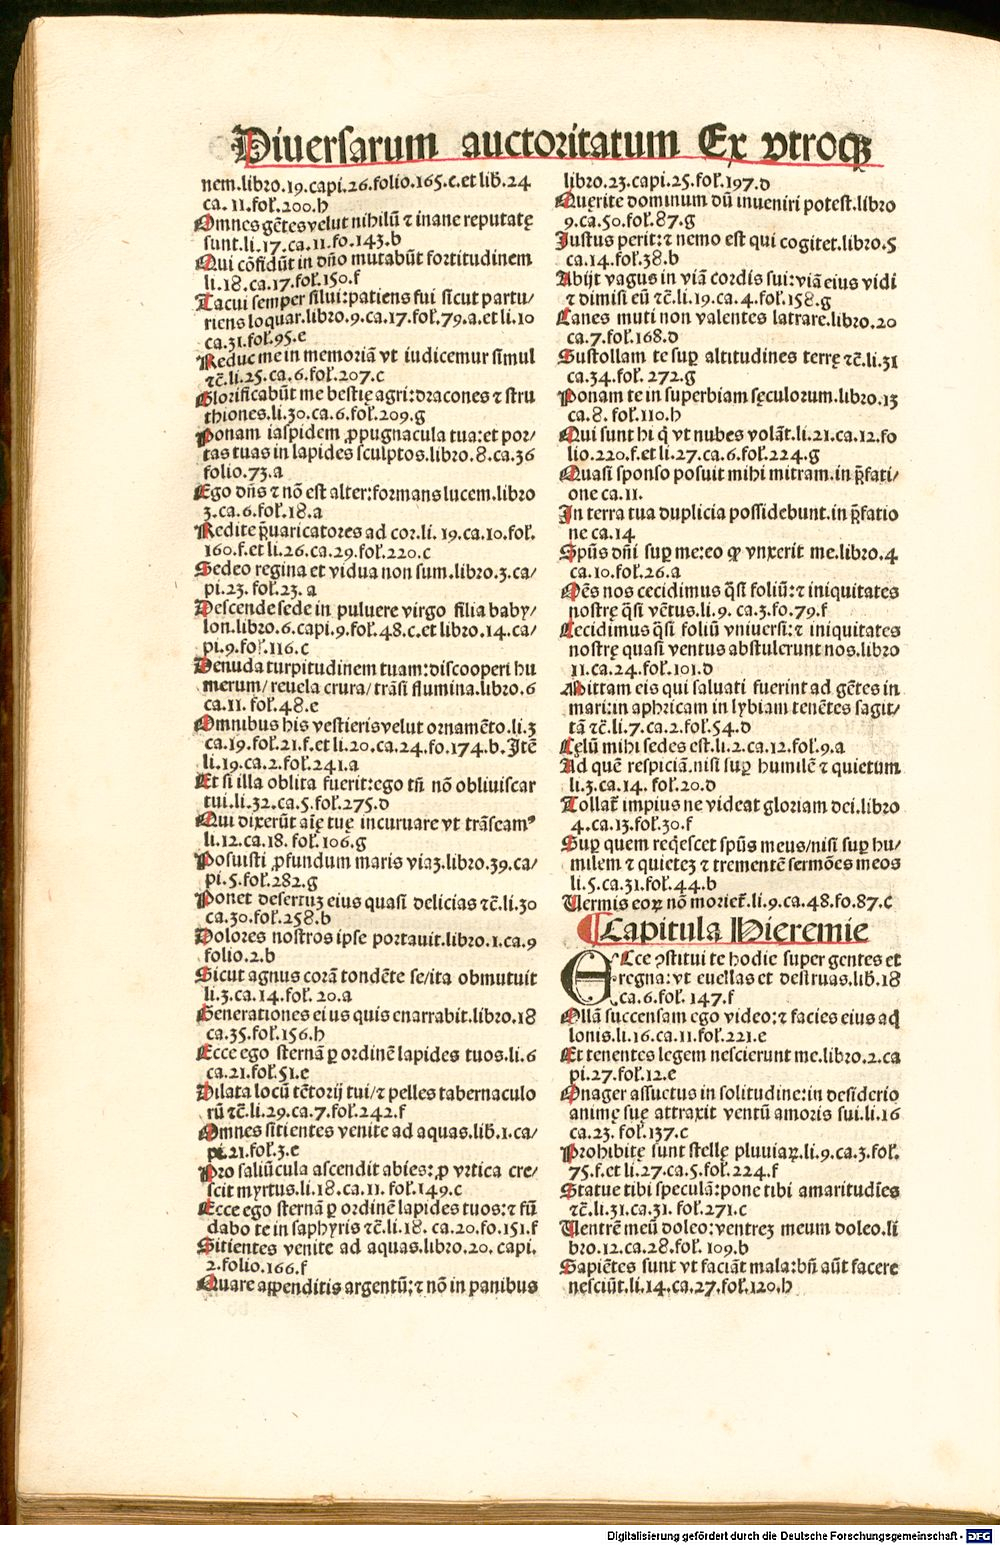 Diuersarum auctoritatum Ex vtroqꝫ
nem.libro.19.capi.26.folio.165.c.et lib̄.24
ca. 11.fol̄.200.h
Omnes gẽtes velut nihilũ ⁊ inane reputatę
sunt.li.17.ca.11.fo.143.b
Qui cõfidũt in dño mutabũt fortitudinem
li.18.ca.17.fol̄.150.f
Tacui semper silui:patiens fui sicut partu/
riens loquar.libro.9.ca.17.fol̄.79.a.et li.10
ca.31.fol̄.95.e
Reduc me in memoriã vt iudicemur simul
⁊c̃.li.25.ca.6.fol̄.207.c
Glorificabũt me bestię agri:dracones ⁊ stru
thiones.li.30.ca.6.fol̄.209.g
Ponam iaspidem ꝓpugnacula tua:et por/
tas tuas in lapides sculptos.libro.8.ca.36
folio.73.a
Ego dñs ⁊ nõ est alter:formans lucem.libro
3.ca.6.fol̄.18.a
Redite p̃uaricatores ad cor.li. 19.ca.10.fol̄.
160.f.et li.26.ca.29.fol̄.220.c
Sedeo regina et vidua non sum.libro.3.ca/
pi.23.fol̄.23. a
Descende sede in puluere virgo filia baby/
lon.libro.6.capi.9.fol̄.48.c.et libro.14.ca/
pi.9.fol̄.116.c
Denuda turpitudinem tuam:discooperi hu
merum/reuela crura/trãsi flumina.libro.6
ca.11. fol̄.48.e
Omnibus his vestieris velut ornamẽto.li.3
ca.19.fol̄.21.f.et li.20.ca.24.fo.174.b.Itẽ
li.19.ca.2.fol̄.241.a
Et si illa oblita fuerit:ego tñ nõ obliuiscar
tui.li.32.ca.5.fol̄.275.d
Qui dixerũt aĩę tuę incuruare vt trãseamꝰ
li.12.ca.18. fol̄.106.g
Posuisti ꝓfundum maris viaꝫ.libro.39.ca/
pi.5.fol̄.282.g
Ponet desertuꝫ eius quasi delicias ⁊c̃.li.30
ca.30.fol̄.258.b
Dolores nostros ipse portauit.libro.1.ca.9
folio.2.b
Sicut agnus corã tondẽte se/ita obmutuit
li.3.ca.14.fol̄. 20.a
Generationes eius quis enarrabit.libro.18
ca.35.fol̄.156.h
Ecce ego sternã ꝑ ordinẽ lapides tuos.li.6
ca.21.fol̄.51.e
Dilata locũ tẽtorij tui/⁊ pelles tabernaculo
rũ ⁊c̃.li.29.ca.7.fol̄.242.f
Omnes sitientes venite ad aquas.lib̄.1.ca/
pi.21.fol̄.3.e
Pro saliũcula ascendit abies:ꝓ vrtica cre/
scit myrtus.li.18.ca.11. fol̄.149.c
Ecce ego sternã ꝑ ordinẽ lapides tuos:⁊ fũ
dabo te in saphyris ⁊c̃.li.18. ca.20.fo.151.f
Sitientes venite ad aquas.libro.20. capi.
2.folio.166.f
Quare appenditis argentũ:⁊ nõ in panibus
libro.23.capi.25.fol̄.197.d
Quęrite dominum dũ inueniri potest.libro
9.ca.50.fol̄.87.g
Iustus perit:⁊ nemo est qui cogitet.libro.5
ca.14.fol̄.38.b
Abijt vagus in viã cordis sui:viã eius vidi
⁊ dimisi eũ ⁊c̃.li.19.ca.4.fol̄.158.g
Canes muti non valentes latrare.libro.20
ca.7.fol̄.168.d
Sustollam te suꝑ altitudines terrę ⁊c̃.li.31
ca.34.fol̄. 272.g
Ponam te in superbiam sęculorum.libro.13
ca.8. fol̄.110.h
Qui sunt hi q̃ vt nubes volãt.li.21.ca.12.fo
lio.220.f.et li.27.ca.6.fol̄.224.g
Quasi sponso posuit mihi mitram.in p̃fati/
one ca.11.
In terra tua duplicia possidebunt.in p̃fatio
ne ca.14
Spũs dñi suꝑ me:eo ꝙ vnxerit me.libro.4
ca.10.fol̄.26.a
Oẽs nos cecidimus q̃si foliũ:⁊ iniquitates
nostrę q̃si vẽtus.li.9. ca.3.fo.79.f
Cecidimus q̃si foliũ vniuersi:⁊ iniquitates
nostrę quasi ventus abstulerunt nos.libro
11.ca.24.fol̄.101.d
Mittam eis qui saluati fuerint ad gẽtes in
mari:in aphricam in lybiam tenẽtes sagit/
tã ⁊c̃.li.7.ca.2.fol̄.54.d
Cęlũ mihi sedes est.li.2.ca.12.fol̄.9.a
Ad quẽ respiciã.nisi suꝑ humilẽ ⁊ quietum
li.3.ca.14. fol̄.20.d
Tollat̃ impius ne videat gloriam dei.libro
4.ca.13.fol̄.30.f
Suꝑ quem req̃escet spũs meus/nisi suꝑ hu/
milem ⁊ quieteꝫ ⁊ trementẽ sermões meos
li.5.ca.31.fol̄.44.b
Uermis eoꝝ nõ moriet̃.li.9.ca.48.fo.87.c
Capitula Hieremie
ECce ꝯstitui te hodie super gentes et
regna:vt euellas et destruas.lib̄.18
ca.6.fol̄. 147.f
Ollã succensam ego video:⁊ facies eius aq̃
lonis.li.16.ca.11.fol̄.221.e
Et tenentes legem nescierunt me.libro.2.ca
pi.27.fol̄.12.e
Onager assuetus in solitudine:in desiderio
animę suę attraxit ventũ amoris sui.li.16
ca.23. fol̄.137.c
Prohibitę sunt stellę pluuiaꝝ.li.9.ca.3.fol̄.
75.f.et li.27.ca.5.fol̄.224.f
Statue tibi speculã:pone tibi amaritudĩes
⁊c̃.li.31.ca.31. fol̄.271.c
Uentrẽ meũ doleo:ventreꝫ meum doleo.li
bro.12.ca.28.fol̄. 109.b
Sapiẽtes sunt vt faciãt mala:bñ aũt facere
nesciũt.li.14.ca.27.fol̄.120.h
Digitalisierung gefördert durch die Deutsche Forschungsgemeinschaft - DFG